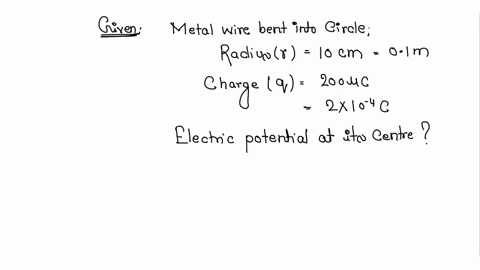 Given: Metal wire bent into Circle;
Radius(r) = 10 cm = 0.1m
Charge (q) = 200μC
= 2×10⁻⁴ C
Electric potential at its Centre?